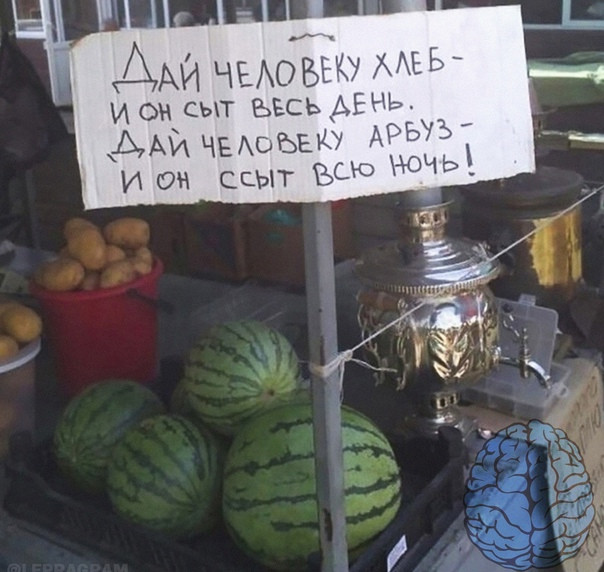 ДАЙ ЧЕЛОВЕКУ ХЛЕБ-
И ОН СЫТ ВЕСЬ ДЕНЬ.
ДАЙ ЧЕЛОВЕКУ АРБУЗ-
И ОН ССЫТ ВСЮ НОЧЬ!
@LEPRAGRAM